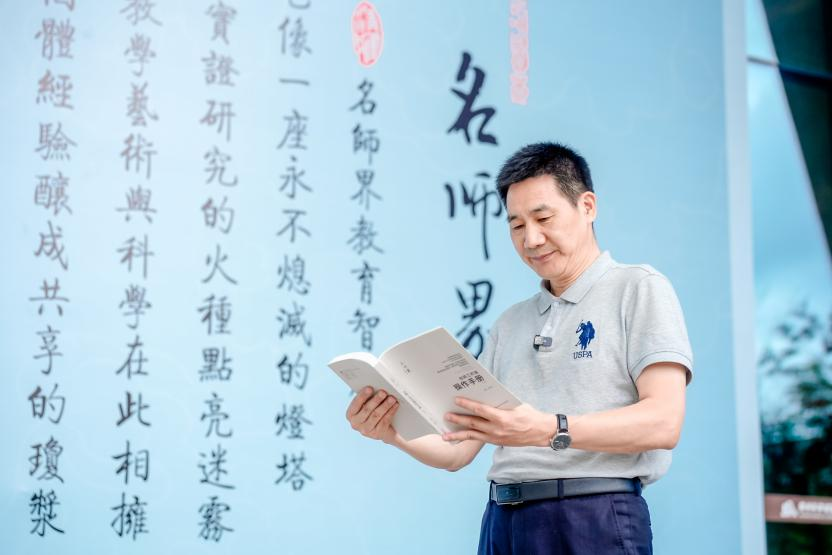 名师界
名師界教育智
像一座永不熄滅的燈塔
實證研究的火種點亮迷霧
教學藝術與科學在此相擁
體經驗釀成共享的瓊漿
操作手册
USPA